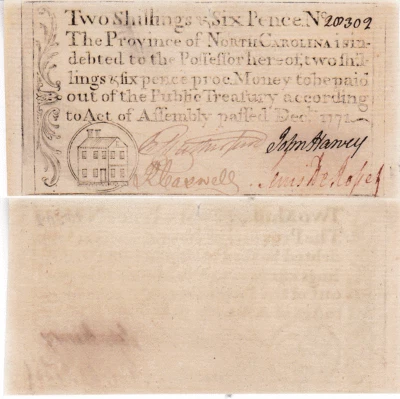 Two Shillings & Six Pence. No 20302
The Province of NORTH CAROLINA is in-
debted to the Possessor hereof, two shil-
lings & six pence proc. Money to be paid
out of the Public Treasury according
to Act of Assembly passed Decr. 1771.
John Harvey
R Caswell Lewis De Rosset